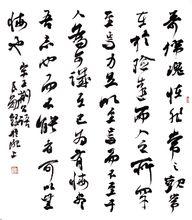 奇偉瑰怪非常之觀常
在於險遠而人之所罕
至焉力足以至焉而不至于
人為可譏在己為有悔
吾志也而不能至者可以無
悔也 宋王荊公語